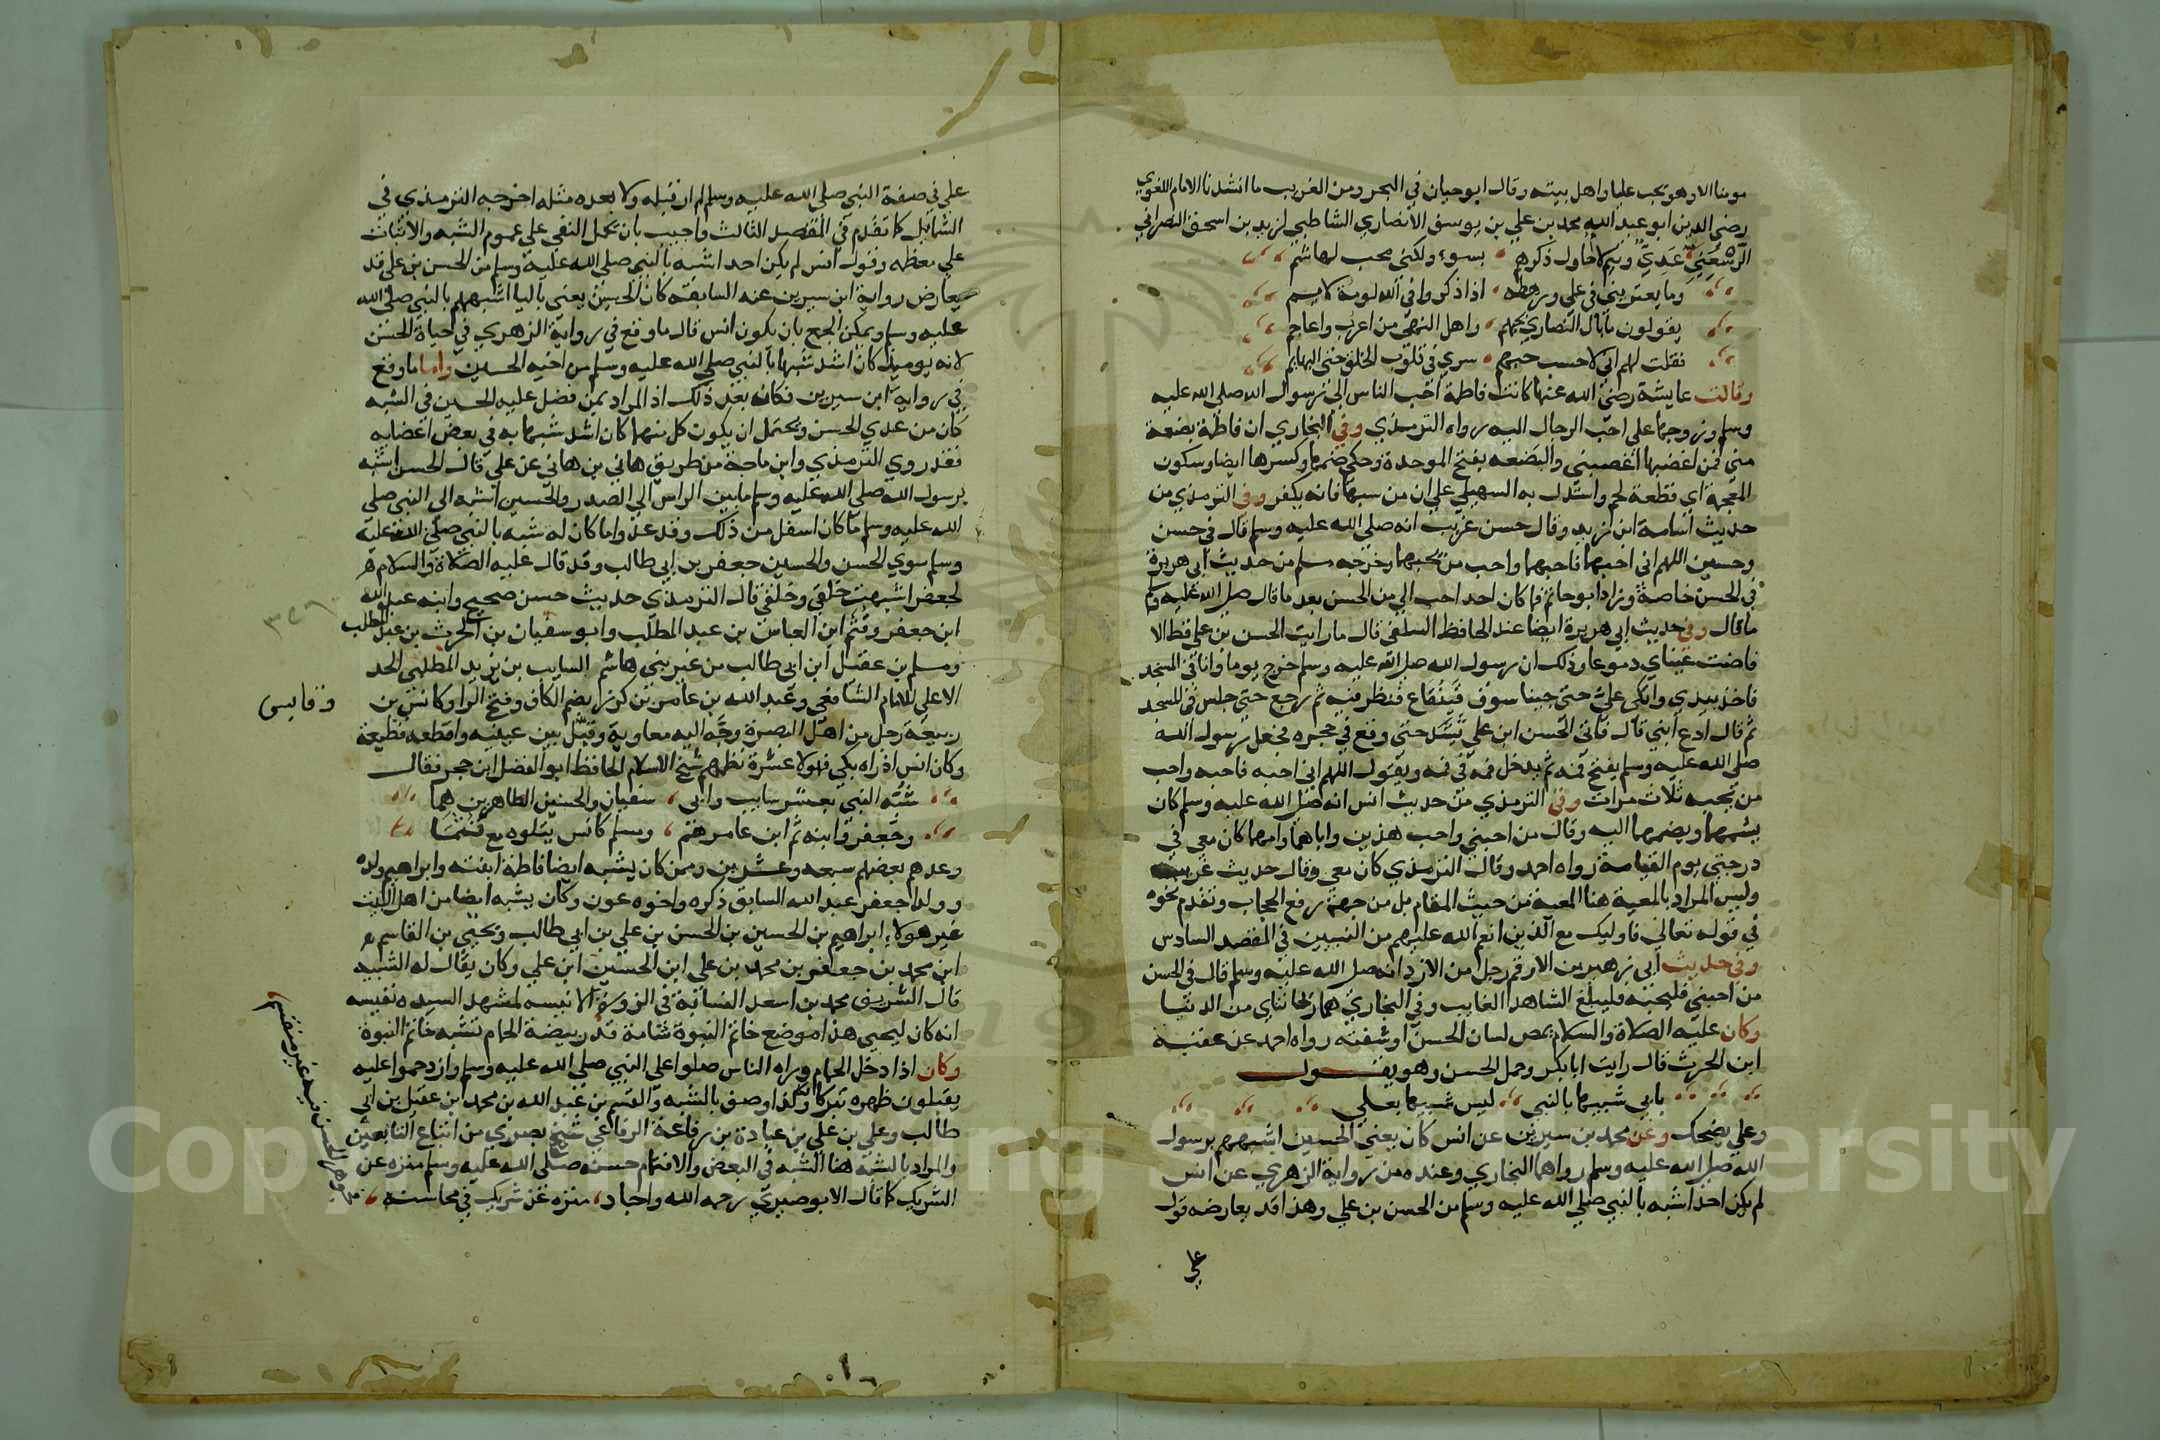 مومنا الا وهو يحب عليا واهل بيته وقال ابو حيان في البحر ومن الغريب ما انشدنا الامام اللغوي
رضي الدين ابو عبد الله محمد بن علي بن يوسف الانصاري الشاطبي لزيد بن اسحق النصراني
عدي وتيم لا احاول ذكرهم بسوء ولكني محب لهاشم
وما يعتريني في علي ورهطه اذا ذكروا في الله لومة لايم
يقولون ما بال النصاري تحبهم واهل النهى من اعرب واعاجم
فقلت لهم اني لاحسب حبهم سري في قلوب الخلق حتى البهايم
وقالت عايشة رضي الله عنها كانت فاطمة احب الناس الى رسول الله صلى الله عليه
وسلم وزوجها علي احب الرجال اليه رواه الترمذي وفي البخاري ان فاطمة بضعة
مني فمن اغضبها اغضبني والبضعه بفتح الموحدة وحكي ضمها وكسرها ايضا وسكون
المعجمة اي قطعة لحم واستدل به السهيلي علي ان من سبها فانه يكفر وفي الترمذي من
حديث اسامة ابن زيد وقال حسن غريب انه صلي الله عليه وسلم قال في حسن
وحسين اللهم اني احبهما فاحبهما واحب من يحبهما وخرجه مسلم من حديث ابي هريرة
في الحسن خاصة وزاد ابو حاتم فما كان احد احب الي من الحسن بعد ما قال صلي الله عليه وسلم
ما قال وفي حديث ابي هريرة ايضا عند الحافظ السلفي قال ما رايت الحسن بن علي قط الا
فاضت عيناي دموعا وذلك ان رسول الله صلى الله عليه وسلم خرج يوما وانا في المسجد
فاخذ بيدي واتكى علي حتى جينا سوق قينقاع فنظر فيه ثم رجع حتى جلس في المسجد
ثم قال ادع ابني قال فاتى الحسن ابن علي يشتد حتى وقع في حجره فجعل رسول الله
صلى الله عليه وسلم يفتح فمه ثم يدخل فمه في فمه ويقول اللهم اني احبه فاحبه واحب
من يحبه ثلاث مرات وفي الترمذي من حديث انس انه صلى الله عليه وسلم كان
يشمهما ويضمهما اليه وقال من احبني واحب هذين واباهما وامهما كان معي في
درجتي يوم القيامة رواه احمد وقال الترمذي كان معي وقال حديث غريب
وليس المراد بالمعية هنا المعية من حيث المقام بل من جهة رفع الحجاب وتقدم نحوه
في قوله تعالي فاوليك مع الذين انعم الله عليهم من النبيين في المقصد السادس
وفي حديث ابي زهير بن الارقم رجل من الازد انه صلى الله عليه وسلم قال في الحسن
من احبني فليحبه فليبلغ الشاهد الغايب وفي البخاري هما ريحانتاي من الدنيا
وكان عليه الصلاة والسلام يمص لسان الحسن او شفته رواه احمد عن عقبة
ابن الحرث قال رايت ابا بكر وحمل الحسن وهو يقول
بابي شبيها بالنبي ليس شبيها بعلي
وعلي يضحك وعن محمد بن سيرين عن انس كان يعني الحسين اشبههم برسول
الله صلى الله عليه وسلم رواهما البخاري وعنده من رواية الزهري عن انس
لم يكن احد اشبه بالنبي صلي الله عليه وسلم من الحسن بن علي وهذا قد يعارضه قول
علي
علي في صفة النبي صلي الله عليه وسلم لم ار قبله ولا بعده مثله اخرجه الترمذي في
الشمايل كما تقدم في المقصد الثالث واجيب بان يحمل النفي علي عموم الشبه والاثبات
علي معظمه وقول انس لم يكن احد اشبه بالنبي صلي الله عليه وسلم من الحسن بن علي قد
يعارض رواية ابن سيرين عنه السابقه كان الحسين يعني باليا اشبههم بالنبي صلى الله
عليه وسلم ويمكن الجمع بان يكون انس قال ما وقع في رواية الزهري في حياة الحسن
لانه يوميذ كان اشد شبها بالنبي صلي الله عليه وسلم من اخيه الحسين واما ما وقع
في رواية ابن سيرين فكان بعد ذلك اذ المراد بمن فضل عليه الحسين في الشبه
كان من عدي الحسن ويحتمل ان يكون كل منهما كان اشد شبها به في بعض اعضايه
فقد روي الترمذي وابن ماجة من طريق هاني بن هاني عن علي قال الحسن اشبه
برسول الله صلي الله عليه وسلم ما بين الراس الي الصدر والحسين اشبه الى النبي صلى
الله عليه وسلم ما كان اسفل من ذلك وقد عدوا ما كان له شبه بالنبي صلى الله عليه
وسلم سوي الحسن والحسين جعفر بن ابي طالب وقد قال عليه الصلاة والسلام
لجعفر اشبهت خلقي وخلقي قال الترمذي حديث حسن صحيح وابنه عبد الله
ابن جعفر وقثم ابن العباس بن عبد المطلب وابو سفيان بن الحرث بن عبد المطلب
ومسلم بن عقيل ابن ابي طالب من غير بني هاشم السايب بن يزيد المطلبي الجد
الاعلي للامام الشافعي وعبد الله بن عامر بن كريز بضم الكاف وفتح الرا وكانس بن
ربيعة رجل من اهل البصرة وجه اليه معاوية وقبل بين عينيه واقطعه قطيعة
وكان انس اذا راه بكي فهولا عشرة نظمهم شيخ الاسلام الحافظ ابو الفضل ابن حجر فقال
شبه النبي بعشر سايب وابي سفيان والحسنين الطاهرين هما
وجعفر وابنه ثم ابن عامر هم ومسلم كانس يتلوه مع قثما
وعدهم بعضهم سبعه وعشرين وممن كان يشبه ايضا فاطمة ابنته وابراهيم ولده
وولدا جعفر عبد الله السابق ذكره واخوه عون وكان يشبه ايضا من اهل البيت
غير هولاء ابراهيم بن الحسين بن الحسن بن علي بن ابي طالب ويحيى بن القاسم
ابن محمد بن جعفر بن محمد بن علي ابن الحسين ابن علي وكان يقال له الشبيه
قال الشريف محمد بن اسعد النسابة في الزورة الانيسه لمشهد السيده نفيسه
انه كان ليحيى هذا موضع خاتم النبوة شامة قدر بيضة الحمام تشبه خاتم النبوة
وكان اذا دخل الحمام وراه الناس صلوا علي النبي صلي الله عليه وسلم وازدحموا عليه
يقبلون ظهره تبركا ولذا وصف بالشبه والقسم بن عبد الله بن محمد ابن عقيل بن ابي
طالب وعلي بن علي بن عبادة بن رفاعة الرفاعي شيخ بصري من اتباع التابعين
والمراد بالشبه هنا الشبه في البعض والا فتمام حسنه صلى الله عليه وسلم منزه عن
الشريك كما قال الابوصيري رحمه الله واجاد منزه عن شريك في محاسنه
وقابس
فجوهر الحسن فيه غير منقسم
Copy King S University